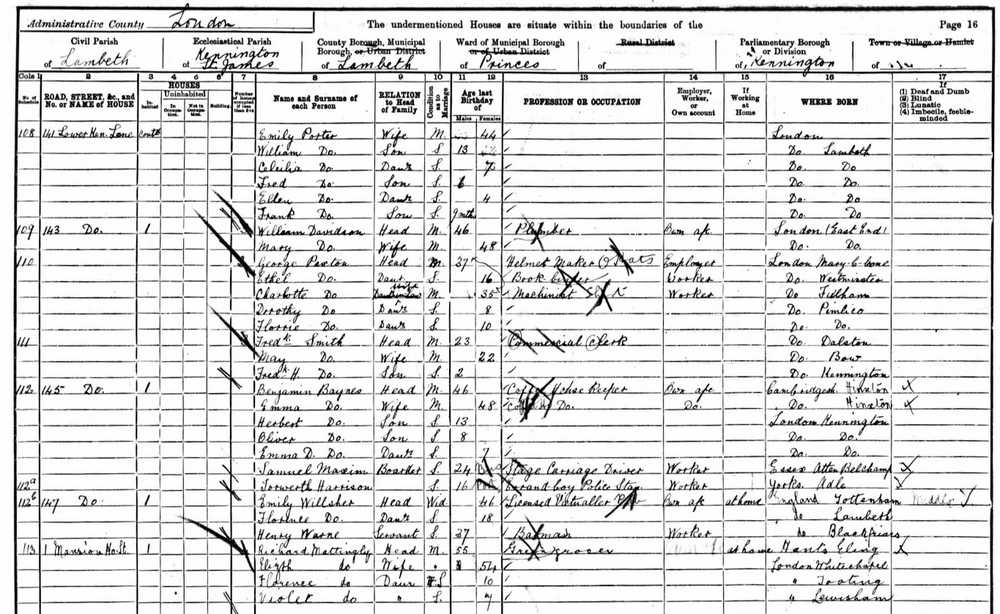 Administrative County London The undermentioned Houses are situate within the boundaries of the Page 16
Civil Parish Ecclesiastical Parish County Borough, Municipal Borough, or Urban District Ward of Municipal Borough or of Urban District Rural District Parliamentary Borough or Division Town or Village or Hamlet
of Lambeth of Kennington St. James of Lambeth of Princes of of Kennington of
Cols 1 2 3 4 5 6 7 8 9 10 11 12 13 14 15 16 17
No. of Schedule ROAD, STREET, &c., and No. or NAME of HOUSE HOUSES Inhabited Uninhabited In Occupation Not in Occupation Building Number of Rooms occupied if less than five Name and Surname of each Person RELATION to Head of Family Condition as to Marriage Age last Birthday of Males Females PROFESSION OR OCCUPATION Employer, Worker, or Own account If Working at Home WHERE BORN If (1) Deaf and Dumb (2) Blind (3) Lunatic (4) Imbecile, feeble-minded
108 141 Lower Ken. Lane contd Emily Porter Wife M. 44 London
William Do. Son S. 13 Do. Lambeth
Cecilia Do Daur S. 7 Do. Do
Fred Do. Son S. 6 Do. Do
Ellen Do. Daur S. 4 Do. Do
Frank Do. Son S. 9 mths Do. Do
109 143 Do. 1 William Davidson Head M. 46 Plumber Own a/c London (East End)
Mary Do. Wife M. 48 Do. Do.
110 George Paxton Head M. 37 Helmet Maker Employer London Mary-le-bone
Ethel Do. Daur S. 16 Book Worker Do. Westminster
Charlotte Do M. 35 Machinist Worker Do Fulham
Dorothy Do Daur S. 8 Do. Pimlico
Florrie Do. Daur S. 10 Do. Do.
111 Fredk. Smith Head M. 23 Commercial Clerk Do. Dalston
May Do. Wife M. 22 Do. Bow
Fredk H. Do. Son S. 2 Do. Kennington
112 145 Do. 1 Benjamin Baynes Head M. 46 Coffee House Keeper Own a/c Cambridgesh. Hinxton
Emma Do. Wife M. 48 Do. Do. Do. Hinxton
Herbert Do. Son S. 13 London Kennington
Oliver Do. Son S. 8 Do. Do.
Emma D. Do. Daur S. 7 Do. Do
Samuel Maxim Boarder S. 24 Stage Carriage Driver Worker Essex Belchamp
112a Iorwerth Harrison S. 16 Errand boy Police Stn Worker Yorks. Adle
112b 147 Do. 1 Emily Willsher Head Wid 46 Licensed Victualler Own a/c at home England Tottenham
Florence Do. Daur S. 18 do Lambeth
Henry Warne Servant S. 27 Barman Worker do Blackfriars
113 1 Mansion Ho. St. 1 Richard Mattingly Head M. 55 Greengrocer at home Hants Eling
Elizth do Wife 54 London Whitechapel
Florence do Daur S 10 " Tooting
Violet do " S. 7 " Lewisham